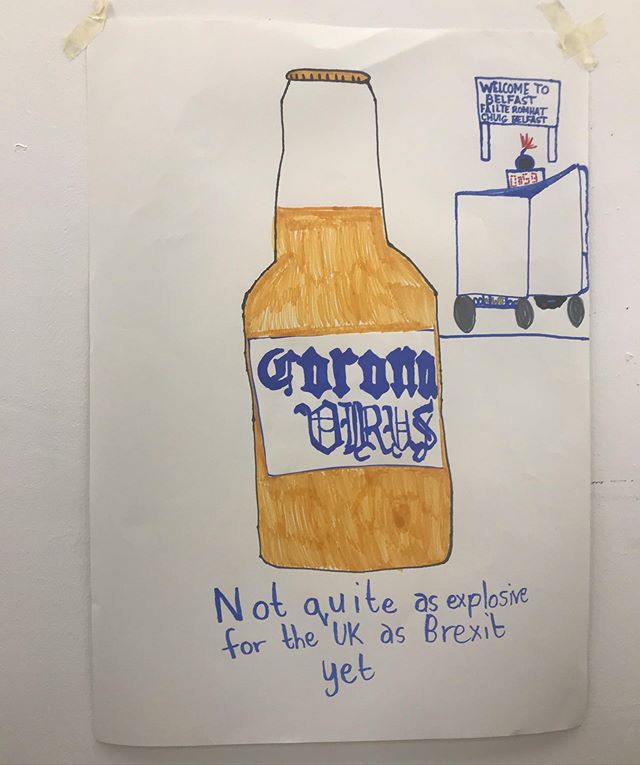 WELCOME TO
BELFAST
FAILTE ROMHAT
CHUIG BELFAST
Corona
VIRUS
Not quite as explosive
for the UK as Brexit
yet